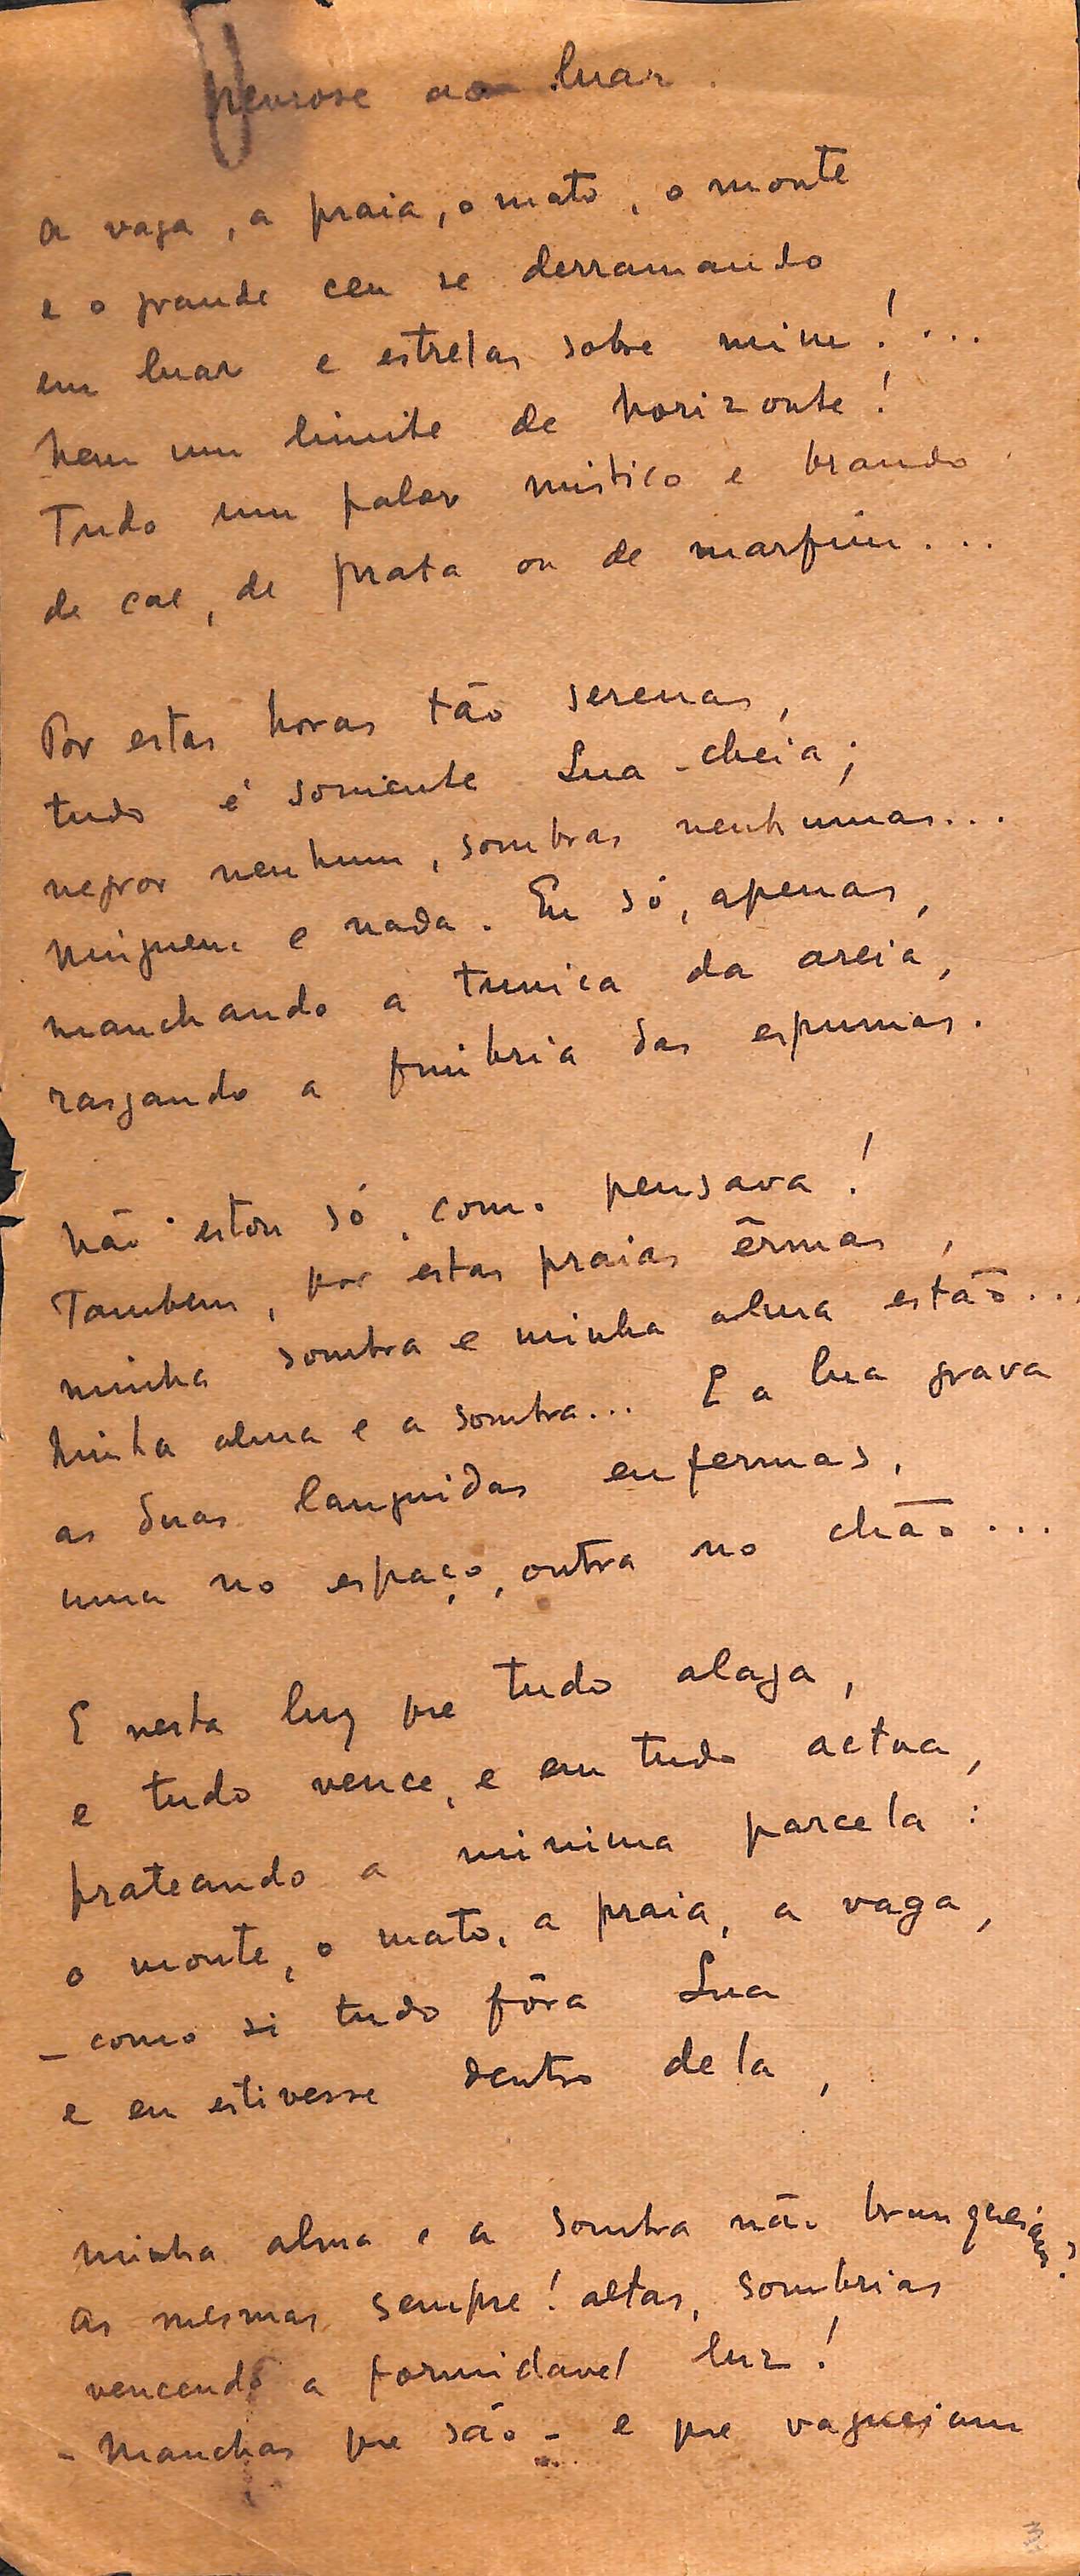 Nevrose ao luar.
A vaga, a praia, o mato, o monte
e o grande ceu se derramando
em luar e estrelas sobre mim!...
Nem um limite de horizonte!
Tudo um palor mistico e brando
de cal, de prata ou de marfim...
Por estas horas tão serenas,
tudo é somente Lua-cheia;
negror nenhum, sombras nenhumas...
Ninguem e nada. Eu só, apenas,
manchando a tunica da areia,
rasgando a fimbria das espumas.
Não estou só, como pensava!
Tambem, por estas praias êrmas,
minha sombra e minha alma estão...
Minha alma e a sombra... E a lua grava
as duas languidas enfermas,
uma no espaço, outra no chão...
E nesta luz que tudo alaga,
e tudo vence, e em tudo actua,
prateando a minima parcela:
o monte, o mato, a praia, a vaga,
- como si tudo fôra Lua
e eu estivesse dentro dela,
minha alma e a sombra não branqueiam!
As mesmas sempre! altas, sombrias
vencendo a formidavel luz!
- Manchas que são - e que vagueiam
3